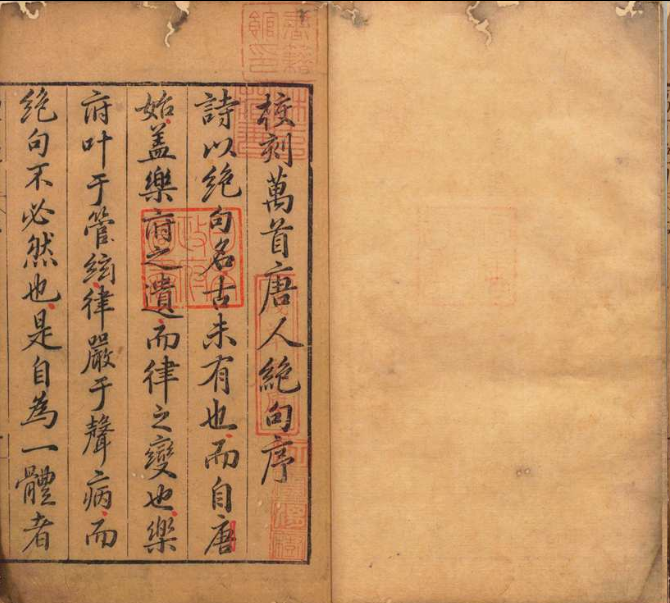 校刻萬首唐人絶句序
詩以絶句名古未有也而自唐
始蓋樂府之遺而律之變也樂
府叶于管絃律嚴于聲病而
絶句不必然也是自為一體者